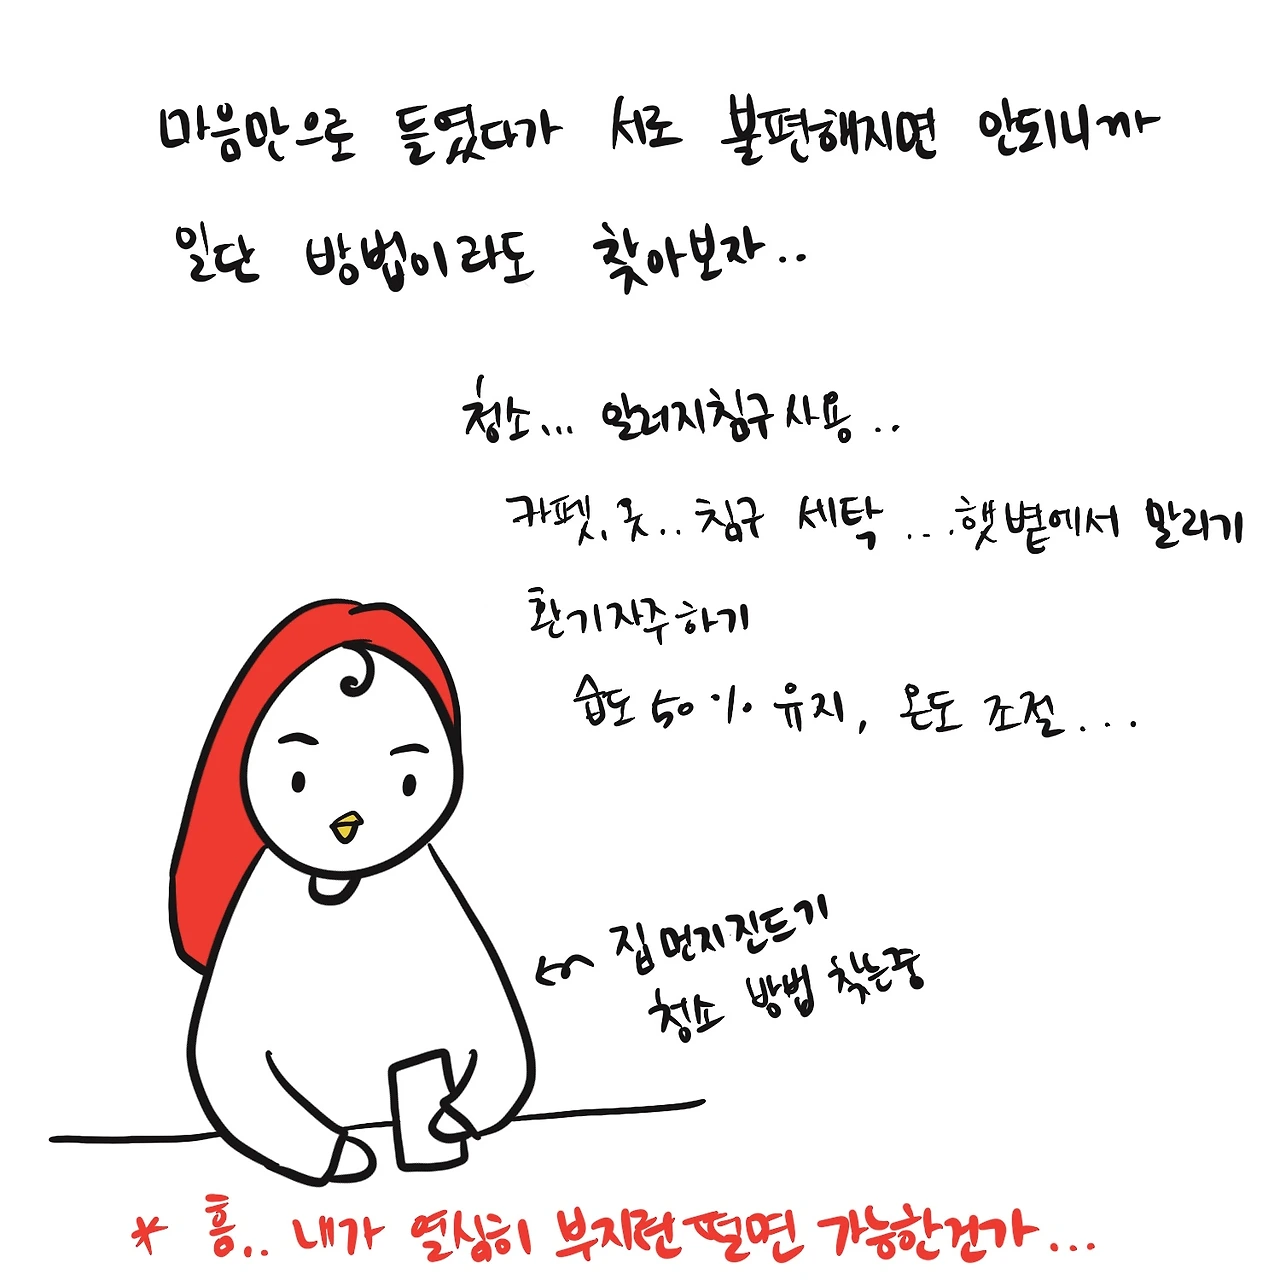 마음만으로 들였다가 서로 불편해지면 안되니까
일단 방법이라도 찾아보자..
청소... 알러지침구사용..
카펫, 옷.. 침구 세탁 ...햇볕에서 말리기
환기자주하기
습도 50% 유지, 온도 조절...
집먼지진드기
청소 방법 찾는중
* 흠.. 내가 열심히 부지런떨면 가능한건가...